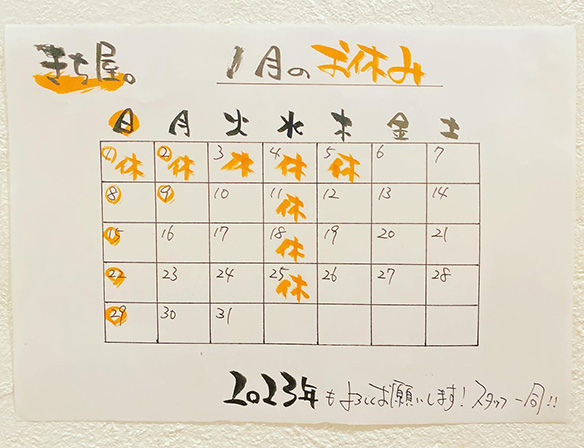 まち屋。 1月のお休み
日 月 火 水 木 金 土
1 休 2 休 3 休 4 休 5 休 6 7
8 9 10 11 休 12 13 14
15 16 17 18 休 19 20 21
22 23 24 25 休 26 27 28
29 30 31
2023年もよろしくお願いします！スタッフ一同！！